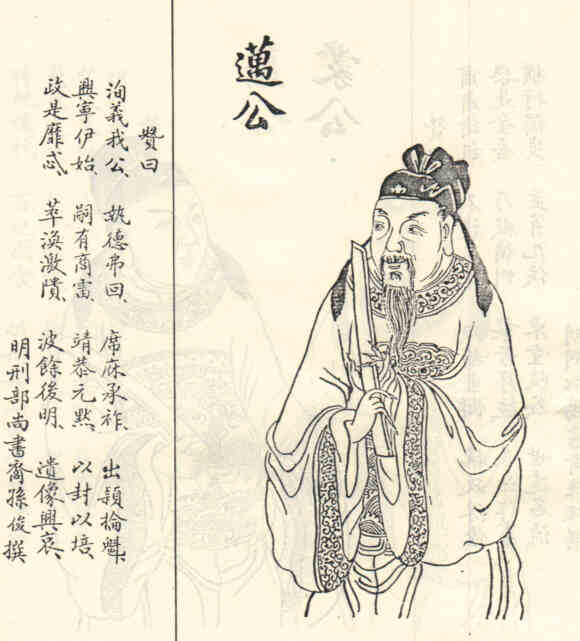 邁公
贊曰
洵義我公、執德弗回、席麻承祚、出穎掄魁、
興寧伊始、嗣有商霤、靖恭元黙、以封以培、
政是靡忒、萃渙激隤、波餘後明、遺像興哀、
明刑部尚書裔孫俊撰